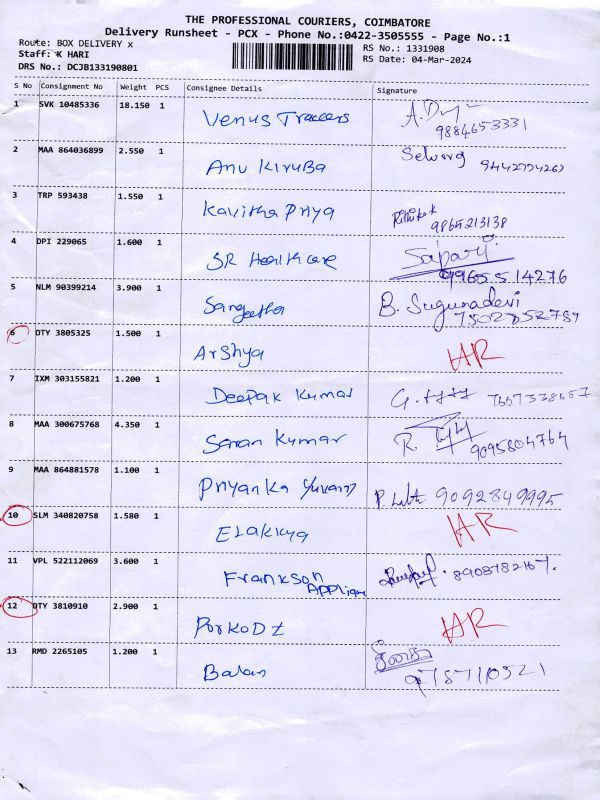 THE PROFESSIONAL COURIERS, COIMBATORE
Delivery Runsheet - PCX - Phone No.:0422-3505555 - Page No.:1
Route: BOX DELIVERY x RS No.: 1331908
Staff: K HARI RS Date: 04-Mar-2024
DRS No.: DCJB133190801
S No Consignment No Weight PCS Consignee Details Signature
1 SVK 10485336 18.150 1 Venus Traccers
9884653331
2 MAA 864036899 2.550 1 Anu Kiruba Selvarg
3 TRP 593438 1.550 1 Kavitha Priya
9865213138
4 DPI 229065 1.600 1 SR Healthcare
99655 14276
5 NLM 90399214 3.900 1 Sangeetha B. Sugunadevi
6 DTY 3805325 1.500 1 Arshya HR
7 IXM 303155821 1.200 1 Deepak Kumar
8 MAA 300675768 4.350 1 Saran Kumar R.
9095804764
9 MAA 864881578 1.100 1 Priyanka 9092849995
10 SLM 340820758 1.580 1 Elakkya HR
11 VPL 522112069 3.600 1 Frankson
8903782167.
12 DTY 3810910 2.900 1 HR
13 RMD 2265105 1.200 1 Balan